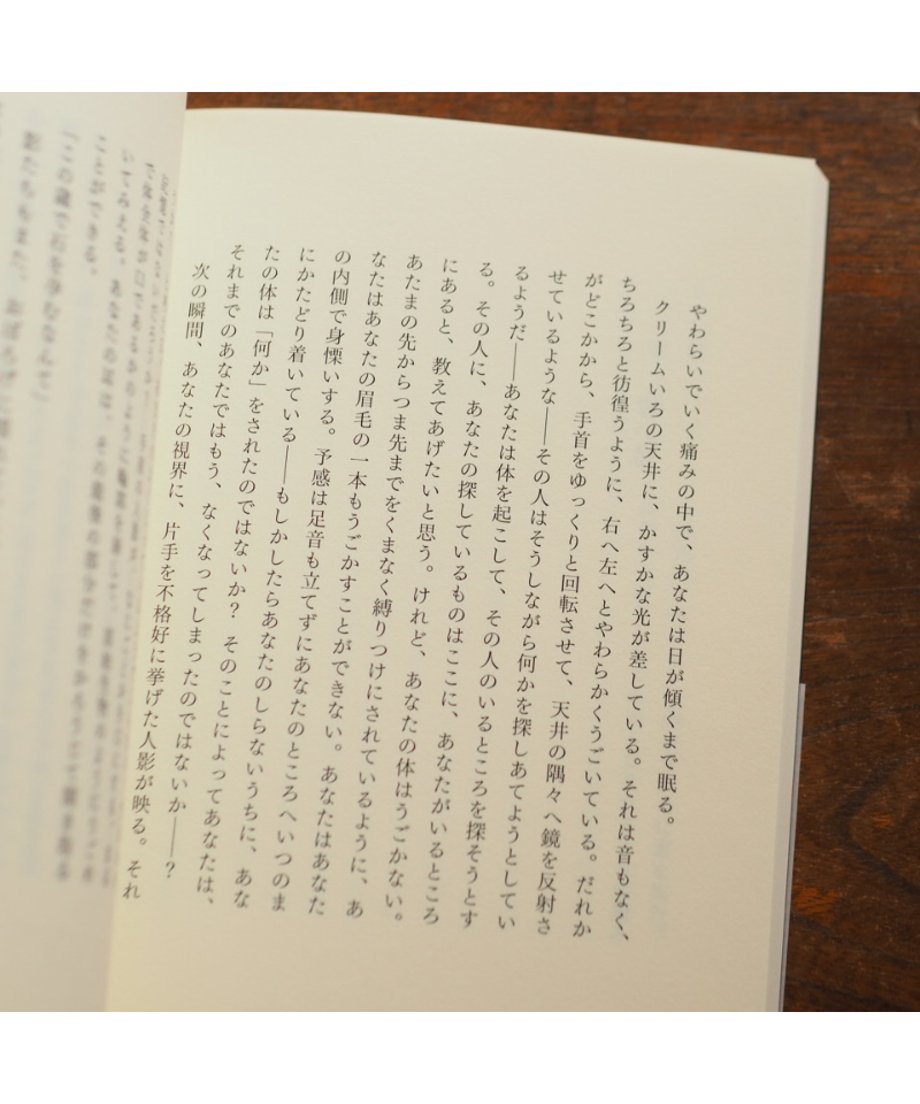 やわらいでいく痛みの中で、あなたは日が傾くまで眠る。
クリームいろの天井に、かすかな光が差している。それは音もなく、
ちろちろと彷徨うように、右へ左へとやわらかくうごいている。だれか
がどこかから、手首をゆっくりと回転させて、天井の隅々へ鏡を反射さ
せているような――その人はそうしながら何かを探しあてようとしてい
るようだ――あなたは体を起こして、その人のいるところを探そうとす
る。その人に、あなたの探しているものはここに、あなたがいるところ
にあると、教えてあげたいと思う。けれど、あなたの体はうごかない。
あたまの先からつま先までをくまなく縛りつけにされているように、あ
なたはあなたの眉毛の一本もうごかすことができない。あなたはあなた
の内側で身慄いする。予感は足音も立てずにあなたのところへいつのま
にかたどり着いている――もしかしたらあなたのしらないうちに、あな
たの体は「何か」をされたのではないか？ そのことによってあなたは、
それまでのあなたではもう、なくなってしまったのではないか――？
次の瞬間、あなたの視界に、片手を不格好に挙げた人影が映る。それ
ことができる。
「この歳で石を孕むなんて」